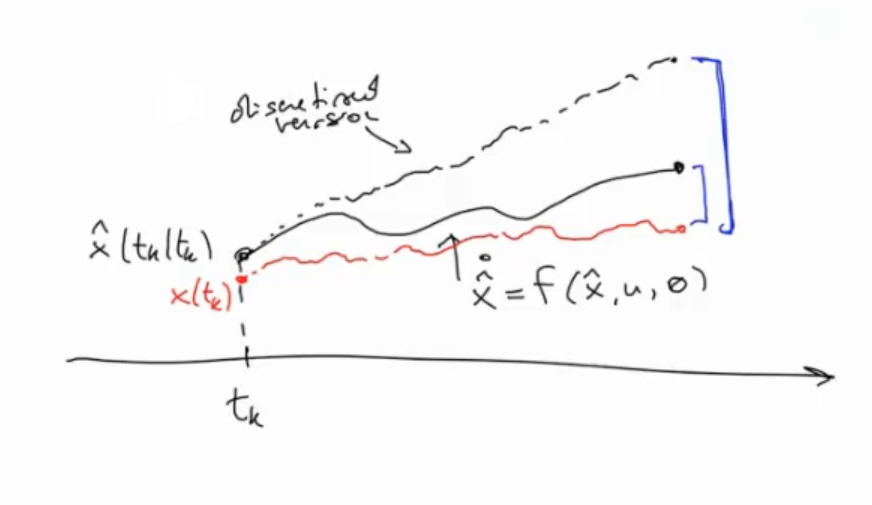 discretized
version
x̂(tₖ|tₖ)
x(tₖ)
x̂̇ = f(x̂, u, 0)
tₖ